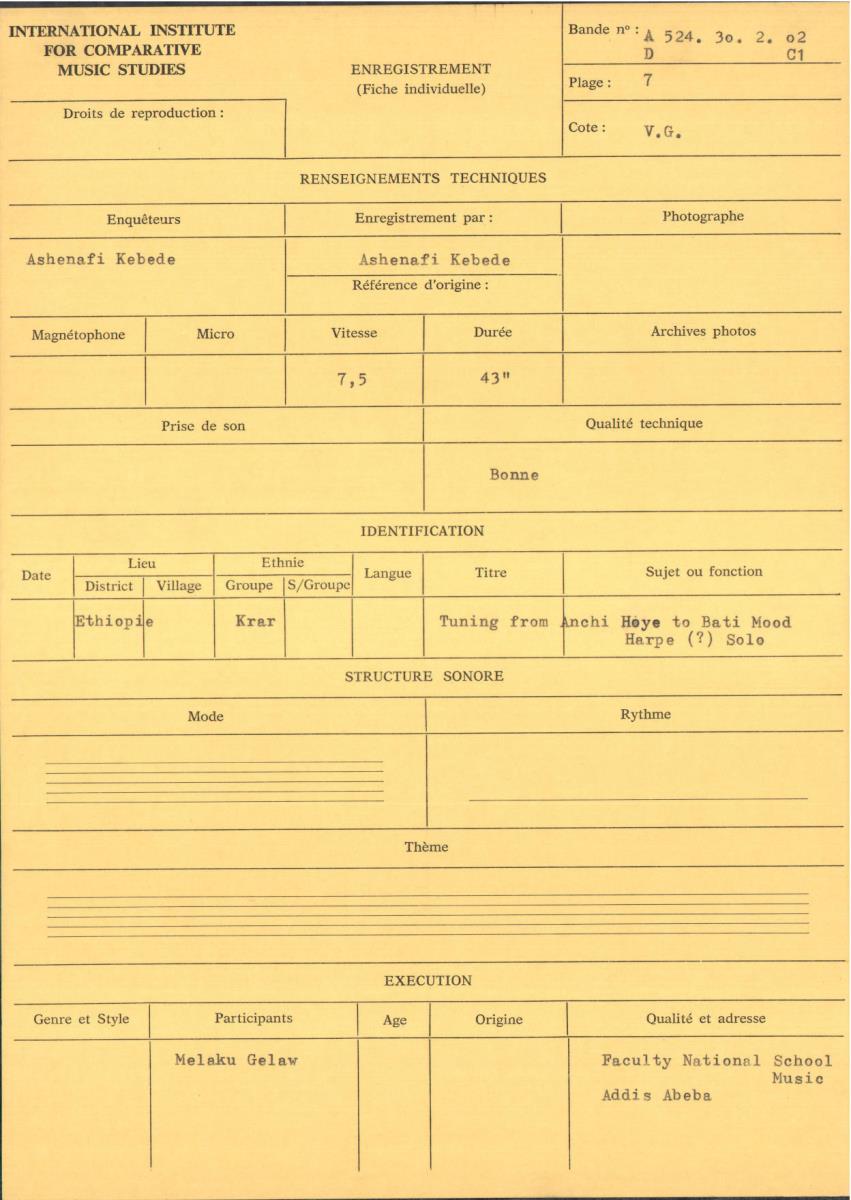 INTERNATIONAL INSTITUTE
FOR COMPARATIVE
MUSIC STUDIES
Droits de reproduction :
ENREGISTREMENT
(Fiche individuelle)
Bande nº : A 524. 3o. 2. o2
D C1
Plage : 7
Cote : V.G.
RENSEIGNEMENTS TECHNIQUES
Enquêteurs Enregistrement par : Photographe
Ashenafi Kebede Ashenafi Kebede
Référence d'origine :
Magnétophone Micro Vitesse Durée Archives photos
7,5 43"
Prise de son Qualité technique
Bonne
IDENTIFICATION
Date Lieu Ethnie Langue Titre Sujet ou fonction
District Village Groupe S/Groupe
Ethiopie Krar Tuning from Anchi Hoye to Bati Mood
Harpe (?) Solo
STRUCTURE SONORE
Mode Rythme
Thème
EXECUTION
Genre et Style Participants Age Origine Qualité et adresse
Melaku Gelaw Faculty National School
Music
Addis Abeba